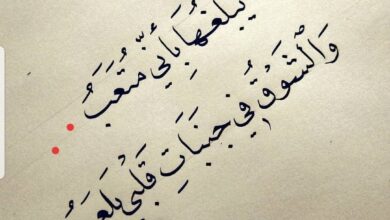 يُبَلِّغُهَا بِأَنِّي مُتْعَبُ ..
وَالشَّوْقُ فِي جَنَبَاتِ قَلْبِي يَلْعَبُ